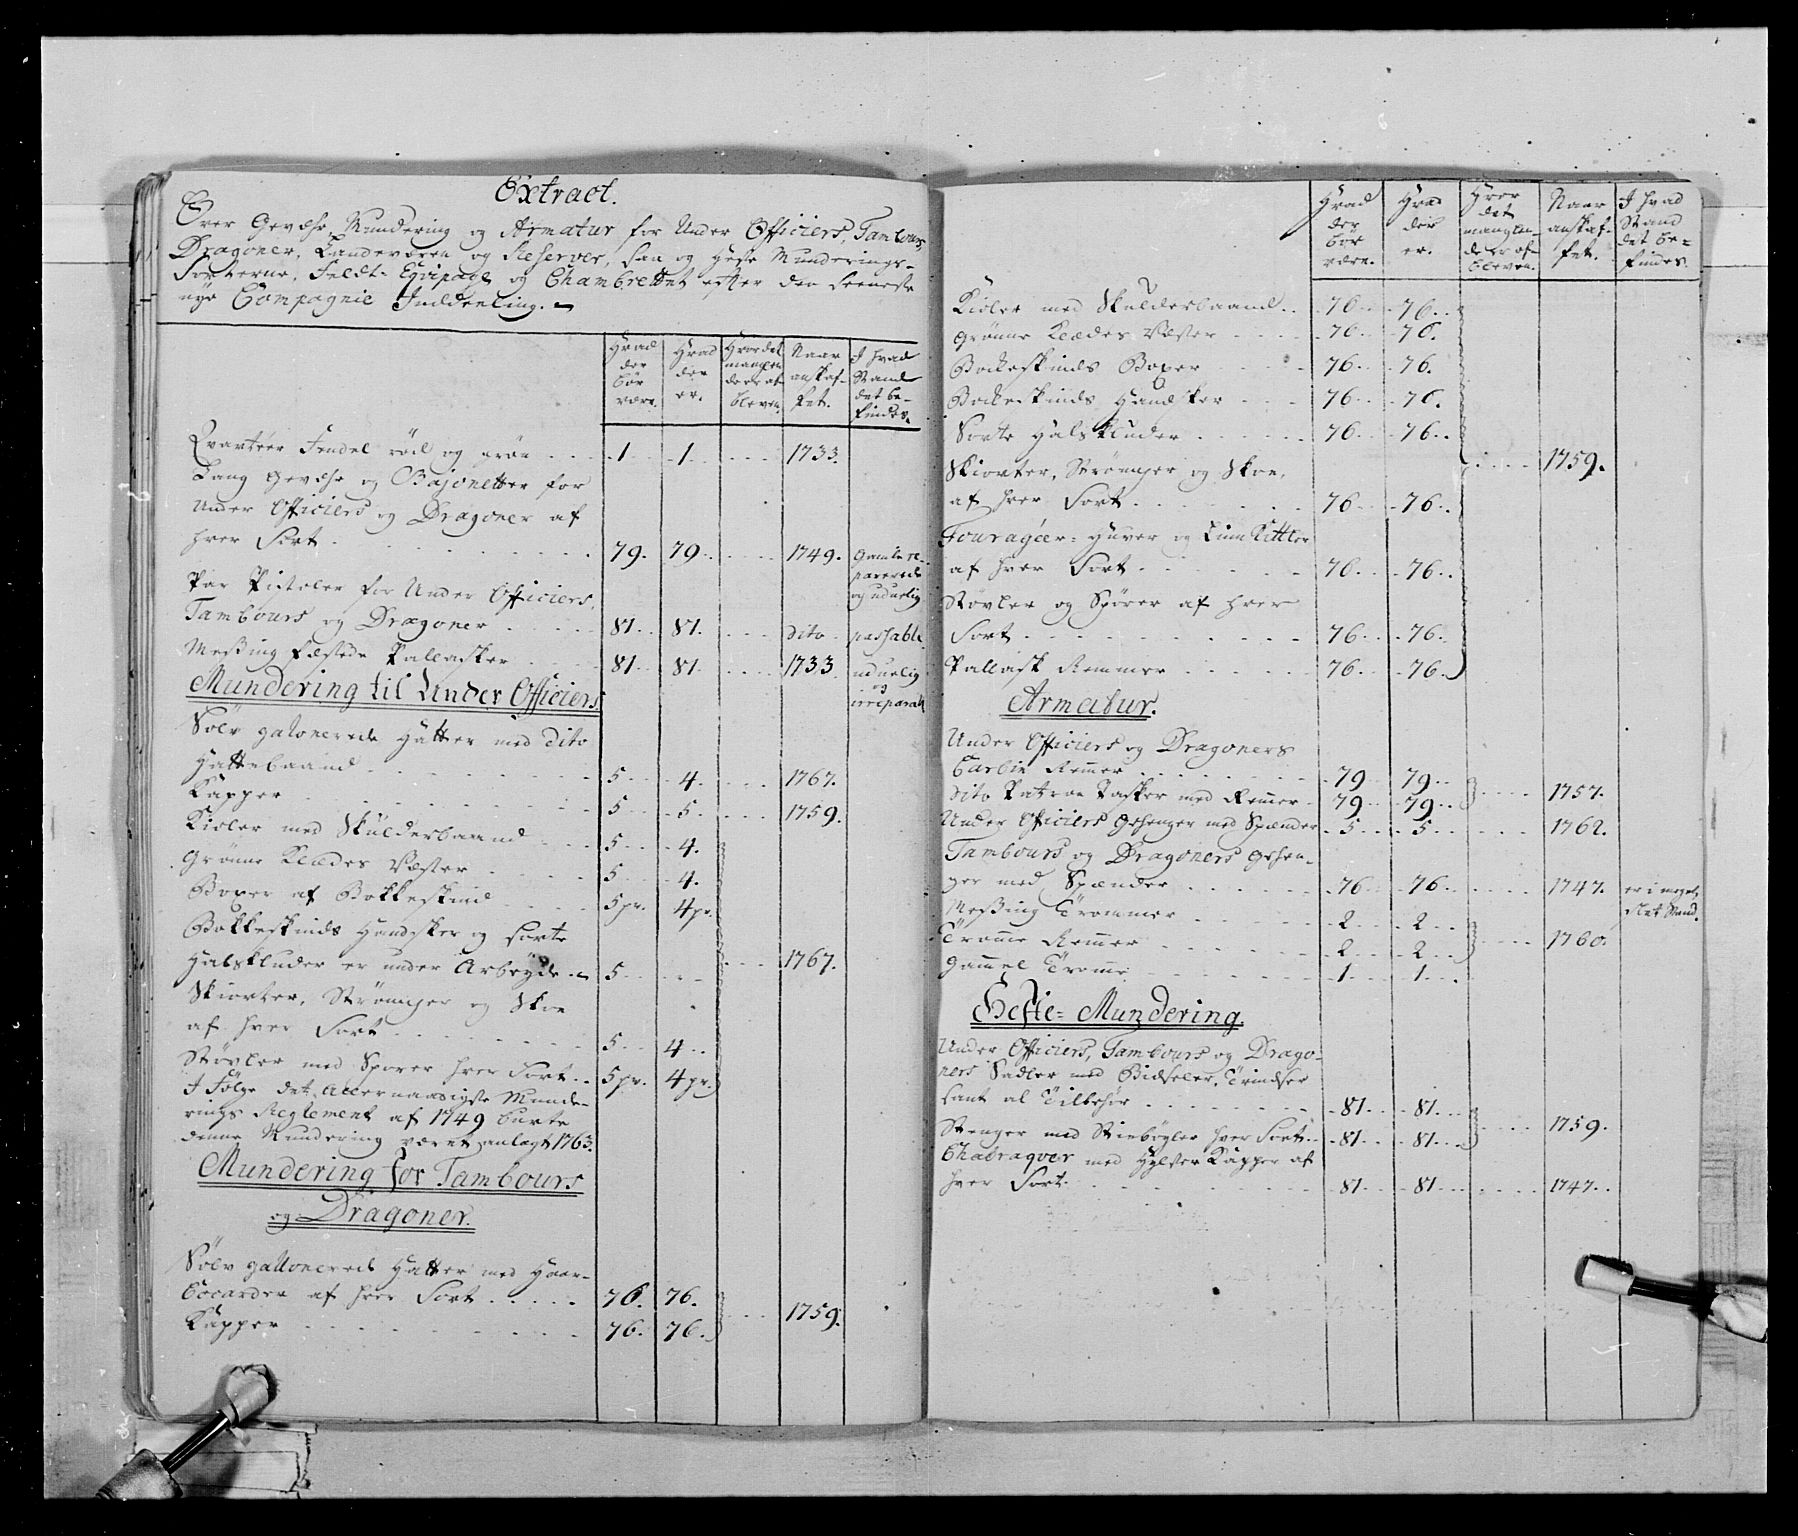 Extract.
Over Gevæhr, Mundering og Armatur for Under Officiers, Tambours
Dragoner, Landeværn og Reserver, saa og Heste Munderings-
Sorterne, Feldt-Equipage og Chambrettet efter den seeneste
nye Compagnie Inddeeling.
Hvad der bør være. | Hvad der er. | Hvor det manglende er afbleven. | Naar anskaffet. | I hvad Stand det befindes.
Qvarteer Fendel röd og grön . . . 1 . . 1 . . . . 1733.
Lang Gevæhr og Bajonetter for
Under Officiers og Dragoner af
hver Sort . . . . 79. 79 . . . . 1749. gamle reparerede og uduelig
Par Pistoler for Under Officiers,
Tambours og Dragoner . . . . 81 . . 81. . . . dito passable
Messing fæstede Pallasker . . . . 81 . . 81 . . . . 1733 uduelig og irreparabl
Mundering til Under Officiers.
Sölv galonerede Hatter med dito
Hattebaand . . . . 5 . . . 4. . . . 1767.
Kapper . . . . 5 . . . 5. . . . 1759.
Kioler med Skulderbaand . . . 5 . . . 4.
Grönne Klædes Væster . . . . 5 . . . 4.
Boxer af Bokkeskind . . . . 5 pr. 4 pr.
Bokkeskinds Handsker og sorte
Halskluder er under Arbeyde . . 5 . . . - . . . 1767.
Skiorter, Strömper og Skoe
af hver Sort . . . . 5 . . 4 . .
Støvler med Sporer hver Sort . . 5 pr. 4 pr.
I Fölge det Allernaadigste Munde-
rings Reglement af 1749 burte
denne Mundering været anlagt 1763.
Mundering for Tambours
og Dragoner.
Sölv gallonerede Hatter med Haar-
Cocarder af hver Sort . . . . . 76. 76.
Kapper . . . . 76. 76. . . . 1759.
Hvad der bør være. | Hvad der er. | Hvor det manglende er afbleven. | Naar anskaffet. | I hvad Stand det befindes.
Kioler med Skulderbaand . . 76 . . 76 . .
Grønne Klædes Væster . . . . 76 . . 76.
Bockeskinds Boxer . . . . 76 . . 76.
Bockeskinds Handsker . . . 76 . . 76.
Sorte Halskluder . . . . . 76 . . 76 . .
Skiorter, Strömper og Skoe, . . . . 1759.
af hver Sort . . . . . 76 . . 76 . .
Fourageer-Huver og Linn Kittler
af hver Sort . . . . . 76 . . 76 . .
Støvler og Spörer af hver
Sort . . . . . 76 . . 76 . .
Pallask Remmer . . . . 76 . . 76 . .
Armatur.
Under Officiers og Dragoners
Carbin Remer . . . . . 79 . . 79 . .
Dito Patron Tasker med Remer . 79 . . 79 . . . . . 1757.
Under Officiers Gehenger med Spænder . 5 . . . 5 . . . . . . 1762.
Tambours og Dragoners Gehen-
ger med Spænder . . . . . 76 . . 76 . . . . . . 1747. er i meget slet Stand.
Messing Trommer . . . . 2 . . 2 . .
Tromme Remer . . . . 2 . . 2 . . . . . 1760.
Gammel Tromme . . . . 1 . . . 1 . .
Heste-Mundering.
Under Officiers, Tambours og Drago-
ners Sadler med Bidseler, Trindser
samt al Tilbehör . . . . . 81 . . 81 . .
Stenger med Stiebøyler hver Sort . . 81 . . 81 . . . . . 1759.
Chabraqver med Hylster Kapper af
hver Sort . . . . . 81 . . 81 . . . . . . 1747.